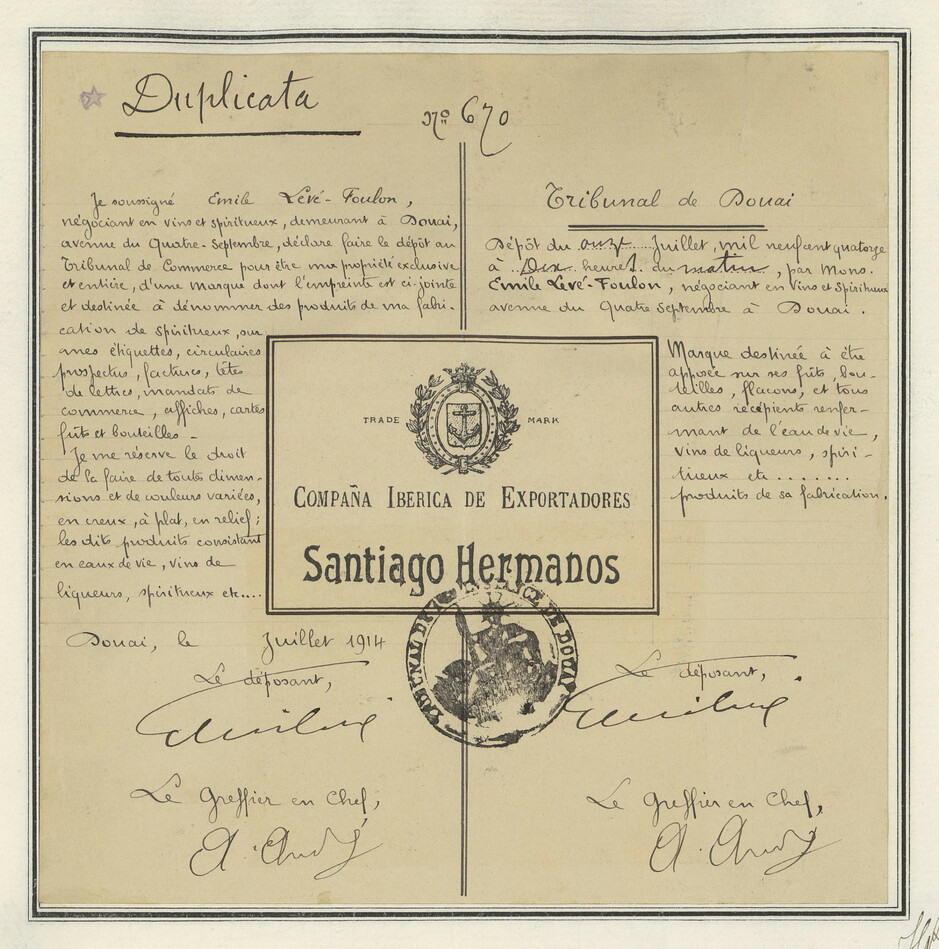 Duplicata
No 670
Je soussigné Emile Levé-Foulon,
négociant en vins et spiritueux, demeurant à Douai,
avenue du Quatre-Septembre, déclare faire le dépôt au
Tribunal de Commerce pour être ma propriété exclusive
et entière, d'une marque dont l'empreinte est ci-jointe
et destinée à dénommer des produits de ma fabri-
cation de spiritueux, sur
mes étiquettes, circulaires
prospectus, factures, têtes
de lettres, mandats de
commerce, affiches, cartes
fûts et bouteilles -
Je me réserve le droit
de la faire de toutes dimen-
sions et de couleurs variées,
en creux, à plat, en relief;
les dits produits consistant
en eaux de vie, vins de
liqueurs, spiritueux etc....
Douai, le Juillet 1914
Le déposant,
Le Greffier en Chef,
Tribunal de Douai
Dépôt du onze Juillet, mil neuf cent quatorze
à Dix heures du matin, par Mons.
Emile Levé-Foulon, négociant en vins et Spiritueux
avenue du Quatre Septembre à Douai.
Marque destinée à être
apposée sur ses fûts, bou-
teilles, flacons, et tous
autres récipients renfer-
mant de l'eau de vie,
vins de liqueurs, spiri-
tueux etc........
produits de sa fabrication.
TRADE MARK
COMPAÑA IBERICA DE EXPORTADORES
Santiago Hermanos
DE DOUAI
Le déposant,
Le Greffier en Chef,